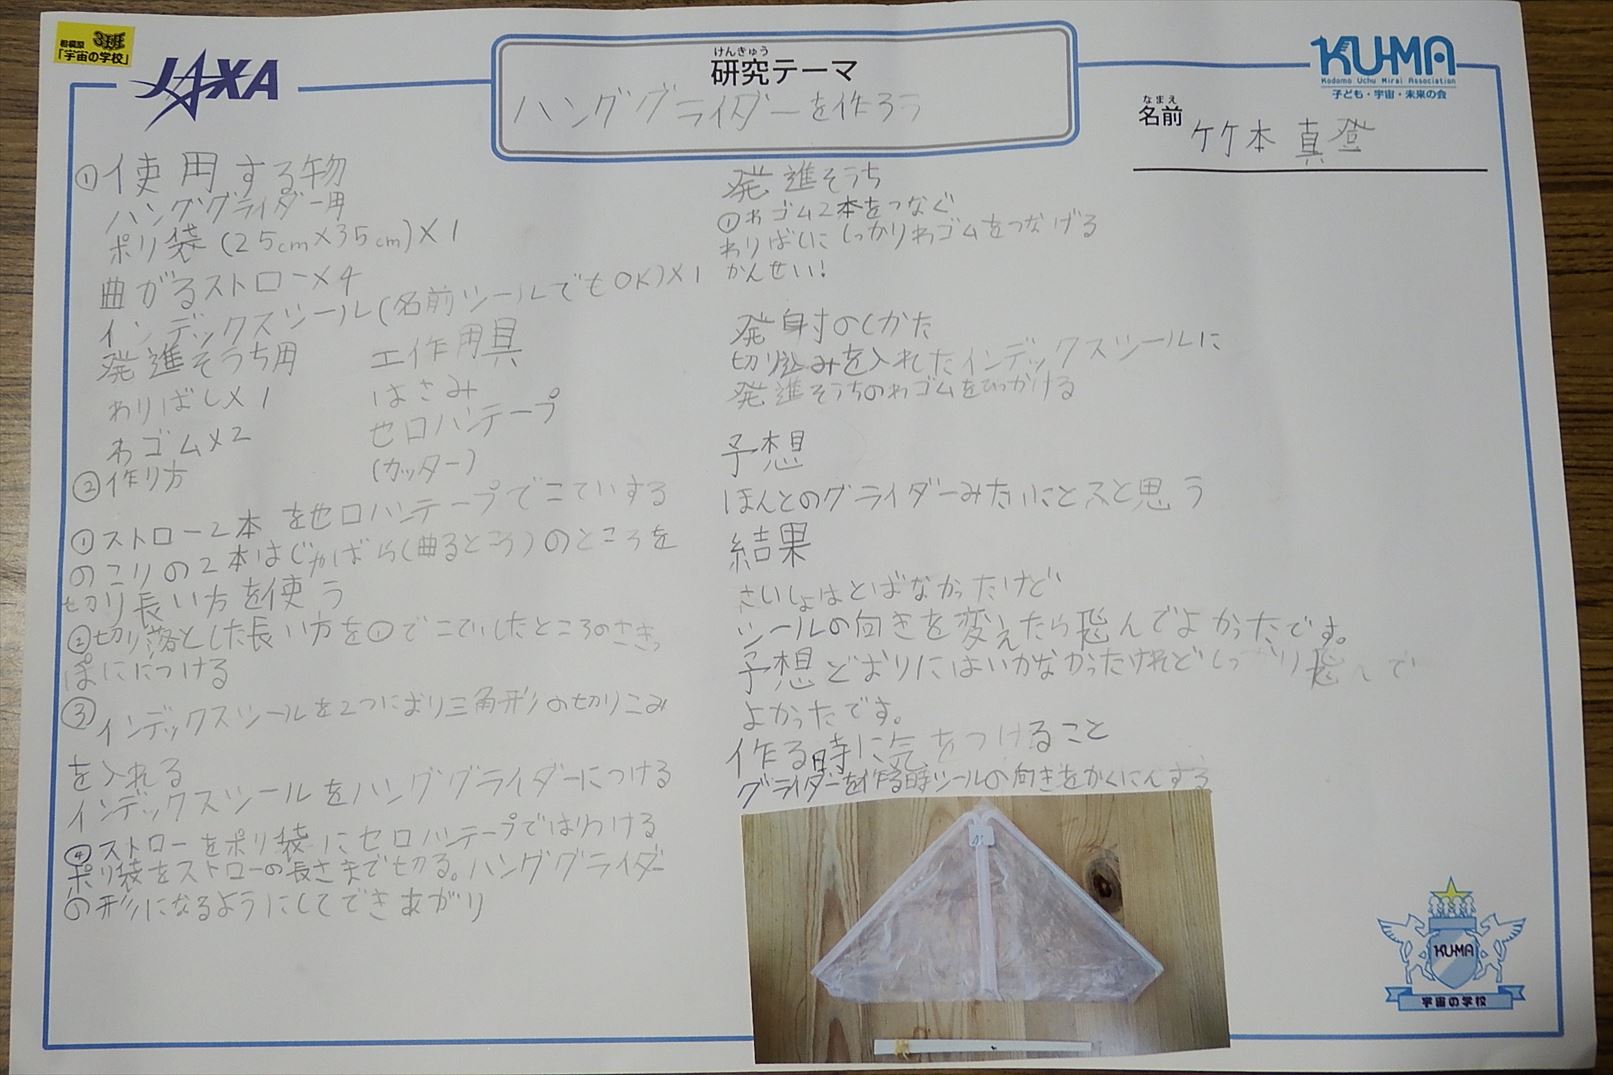 相模原
「宇宙の学校」
JAXA
けんきゅう
研究テーマ
ハンググライダーを作ろう
KU-MA
Kodomo Uchu Mirai Association
子ども・宇宙・未来の会
なまえ
名前
竹本 真登
①使用する物
ハンググライダー用
ポリ袋(25cm×35cm)×1
曲がるストロー×4
インデックスツール(名前ツールでもOK)×1
発進そうち用
わりばし×1
わゴム×2
工作用具
はさみ
セロハンテープ
(カッター)
②作り方
①ストロー2本をセロハンテープでこていする
のこりの2本はじゃばら(曲るところ)のところを
切り長い方を使う
②切り落とした長い方を①でこていしたところのさきっ
ぽにつける
③インデックスツールを2つにおり三角形の切りこみ
を入れる
インデックスツールをハンググライダーにつける
④ストローをポリ袋にセロハンテープではりつける
ポリ袋をストローの長さまで切る。ハンググライダー
の形になるようにしてできあがり
発進そうち
①わゴム2本をつなぐ
わりばしにしっかりわゴムをつなげる
かんせい!
発射のしかた
切り込みを入れたインデックスツールに
発進そうちのわゴムをひっかける
予想
ほんとのグライダーみたいにとぶと思う
結果
さいしょはとばなかったけど
ツールの向きを変えたら飛んでよかったです。
予想どおりにはいかなかったけれどしっかり飛んで
よかったです。
作る時に気をつけること
グライダーを作る時ツールの向きをかくにんする
KU-MA
宇宙の学校